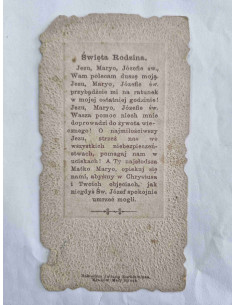 Święta Rodzina.
Jezu, Maryo, Józefie św.,
Wam polecam duszę moją.
Jezu, Maryo, Józefie św.
przybądźcie mi na ratunek
w mojej ostatniej godzinie!
Jezu, Maryo, Józefie św.
Wasza pomoc niech mnie
doprowadzi do żywota wie-
cznego! O najmiłościwszy
Jezu, strzeż nas we
wszystkich niebezpieczeń-
stwach, pomagaj nam w
uciskach! A Ty najsłodsza
Matko Maryo, opiekuj się
nami, abyśmy w Chrystusa
i Twoich objęciach, jak
niegdyś Św. Józef spokojnie
umrzeć mogli.